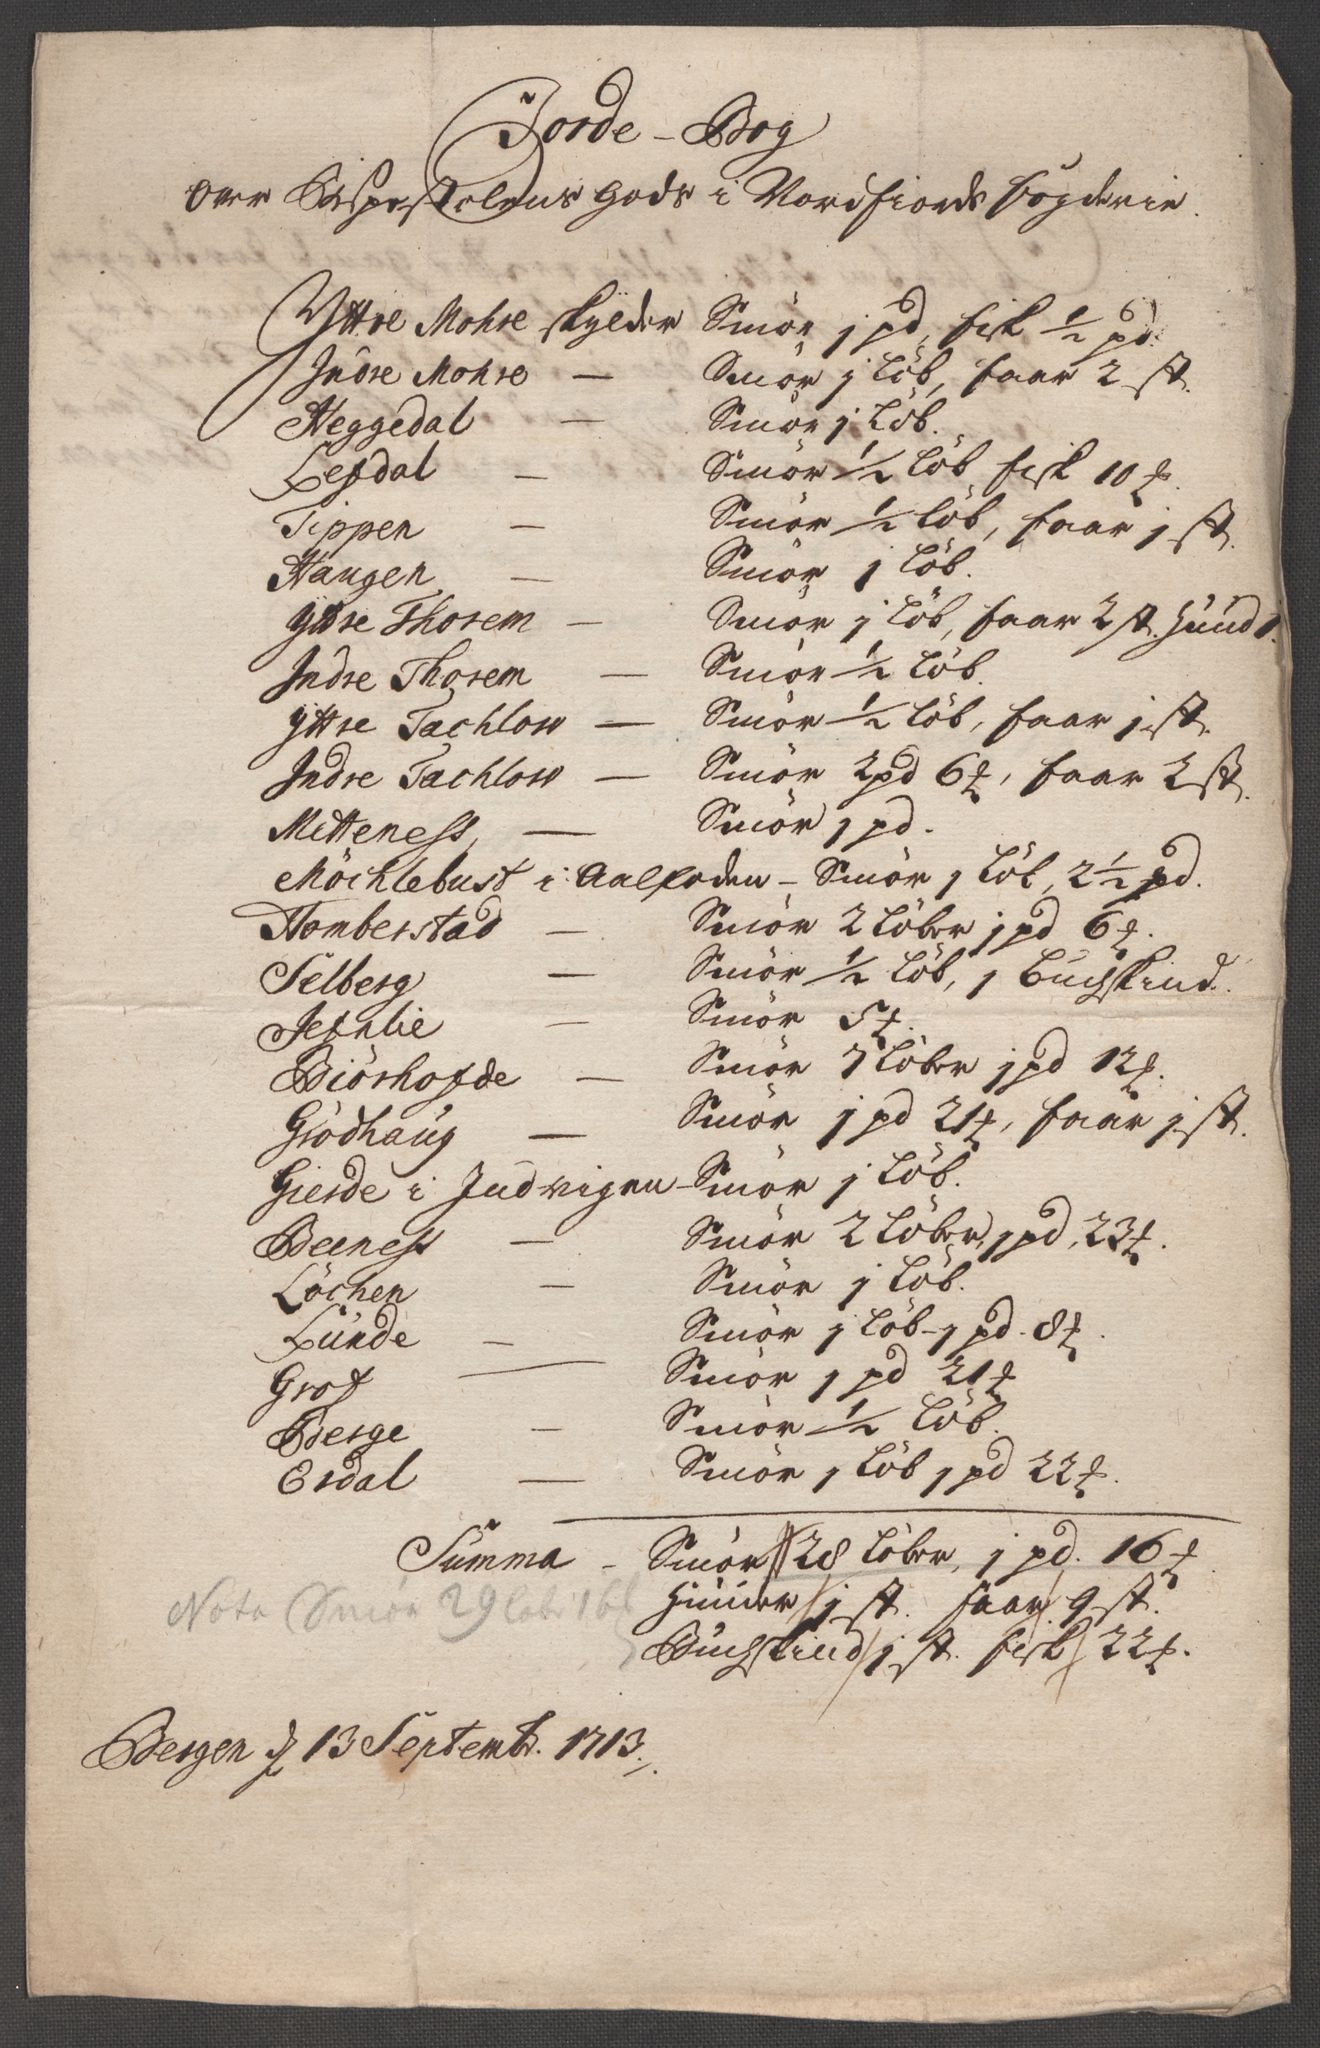 Jorde-Bog
over Bispestolens gods i Nordfiords fögderie.
Yttre Mohre skylder Smör j pd, fisk ½ pd.
Indre Mohre — Smör j Löb, faar 2 st.
Heggedal — Smör j Löb.
Lefdal — Smör ½ Löb, fisk 10 ℔.
Tippen — Smör ½ Löb, faar j st.
Haugen — Smör j Löb.
Yttre Thorem — Smör j Löb, faar 2 st. Huud 1.
Indre Thorem — Smör ½ Löb.
Yttre Tachlow — Smör ½ Löb, faar j st.
Indre Tachlow — Smör 2 pd 6 ℔, faar 2 st.
Mitteness — Smör j pd.
Möchlebust i Aalfoden – Smör j Löb, 2½ pd.
Homberstad — Smör 2 Löber j pd 6 ℔.
Selberg — Smör ½ Löb, j Buchskind.
Jefnlie — Smör 5 ℔.
Biörhofde — Smör 7 Löber j pd 12 ℔.
Giödhaug — Smör j pd 21 ℔, faar j st.
Gierde i Indvigen – Smör j Löb.
Beeness — Smör 2 Löber, j pd, 23 ℔.
Löchen — Smör j Löb.
Lunde — Smör j Löb - j pd. 8 ℔.
Grof — Smör j pd 21 ℔
Berge — Smör ½ Löb.
Erdal — Smör j Löb j pd 22 ℔.
Summa – Smör 28 Löber, j pd. 16 ℔
Huuder j st. faar 9 st.
Nota Smör 29 Löb 16 ℔
Buchskind j st. fisk 22 ℔.
Bergen d 13 Septembr. 1713.